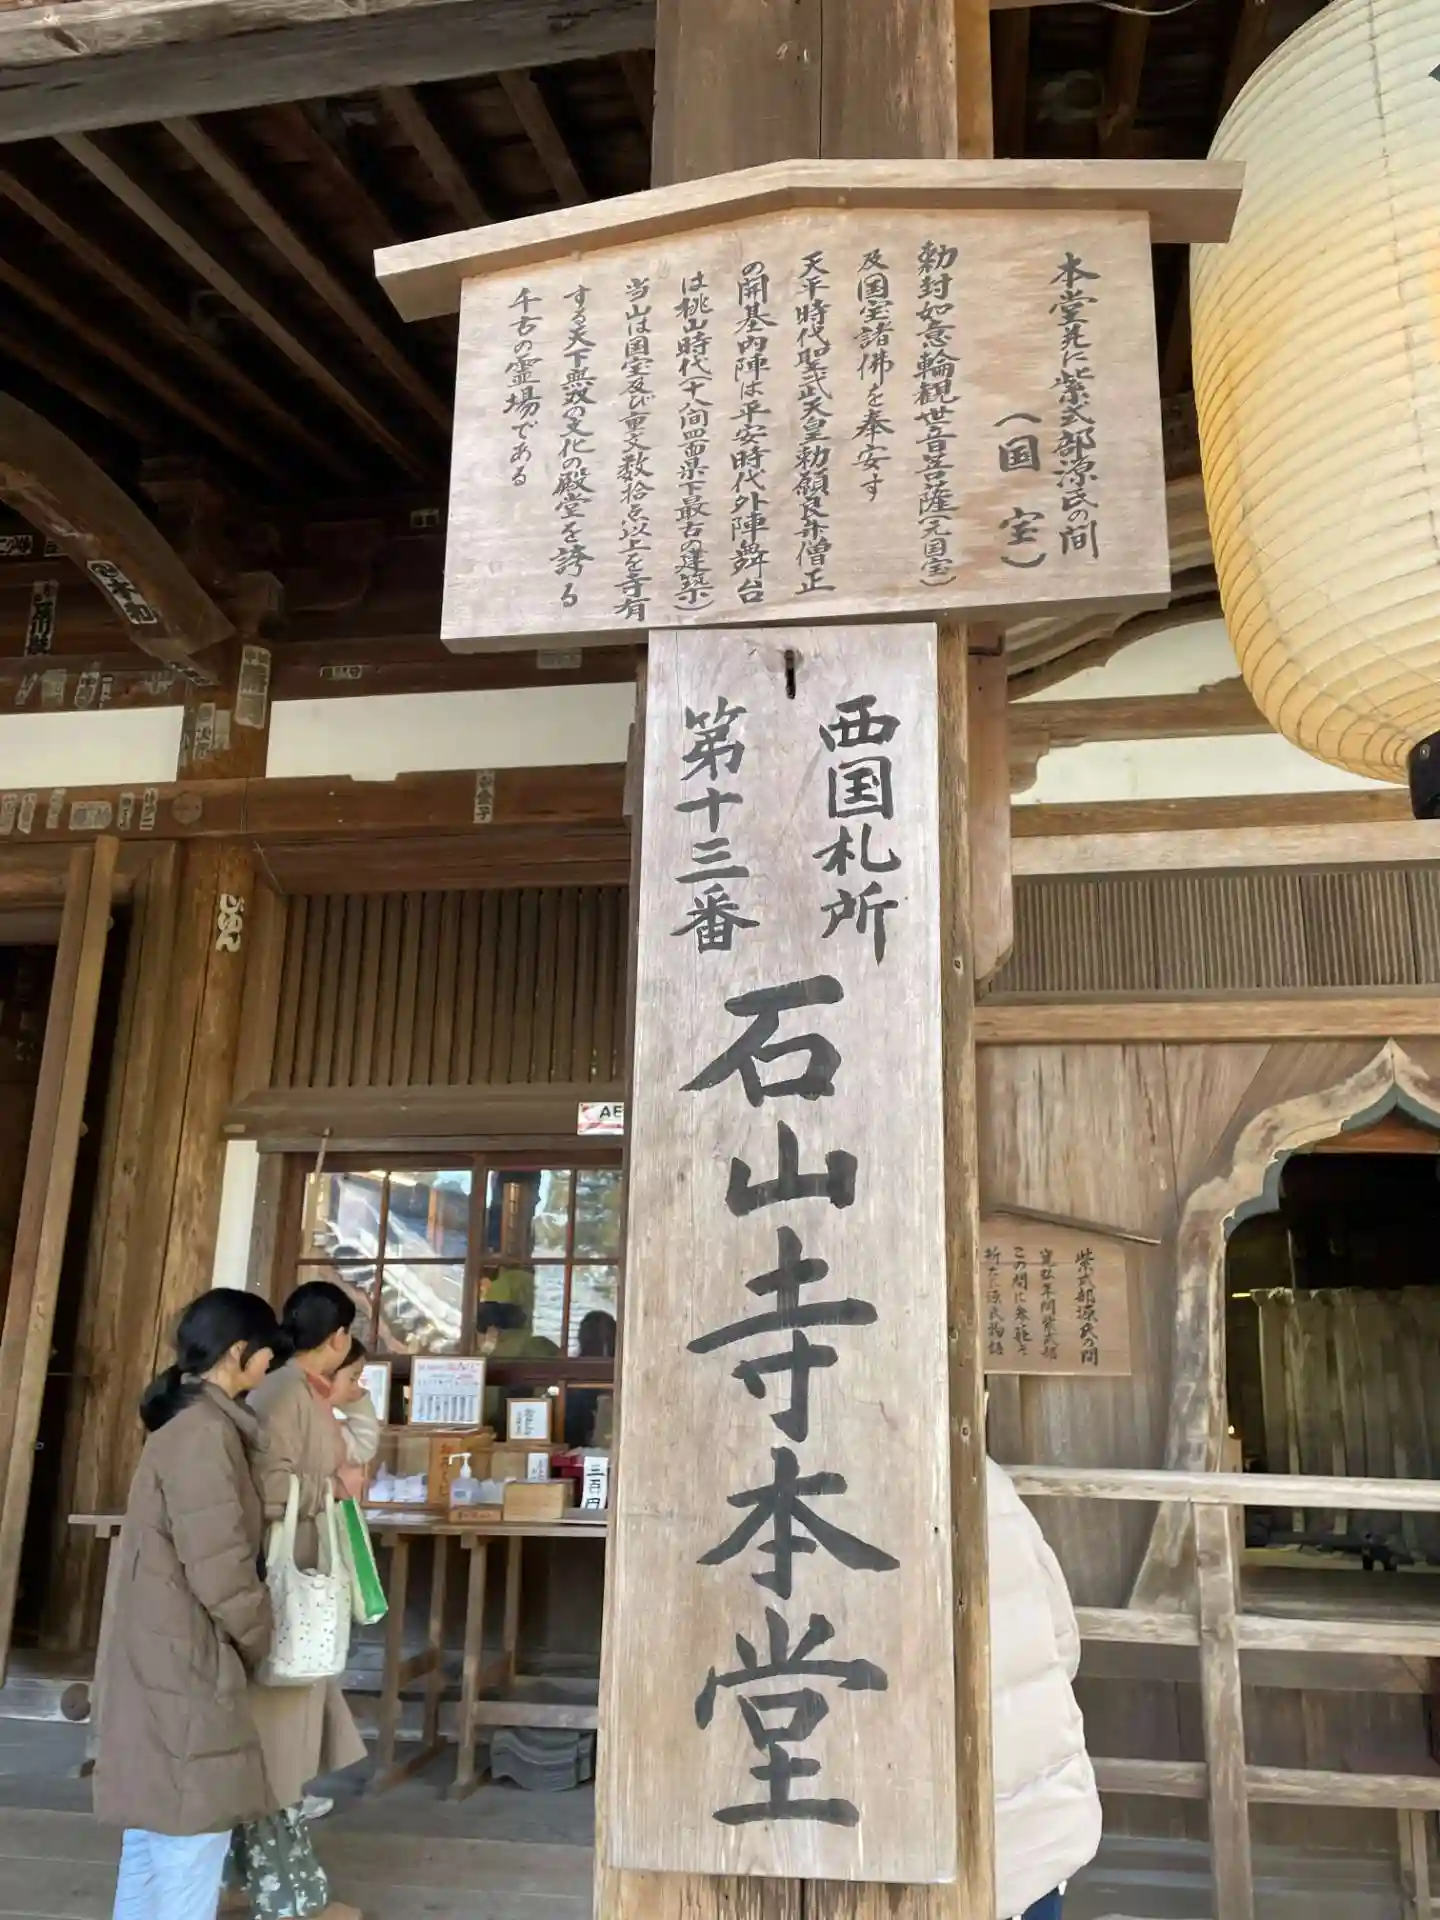 本堂並に紫式部源氏の間
（国宝）
勅封如意輪観世音菩薩（元国宝）
及国宝諸佛を奉安す
天平時代聖武天皇勅願良弁僧正
の開基内陣は平安時代外陣舞台
は桃山時代（十八間四面県下最古の建築）
当山は国宝及び重文数拾点以上を寺有
する天下無双の文化の殿堂を誇る
千古の霊場である
西国札所
第十三番
石山寺本堂
紫式部源氏の間
寛弘年間紫式部
この間に参籠
源氏物語
じゅん
AE
三百円